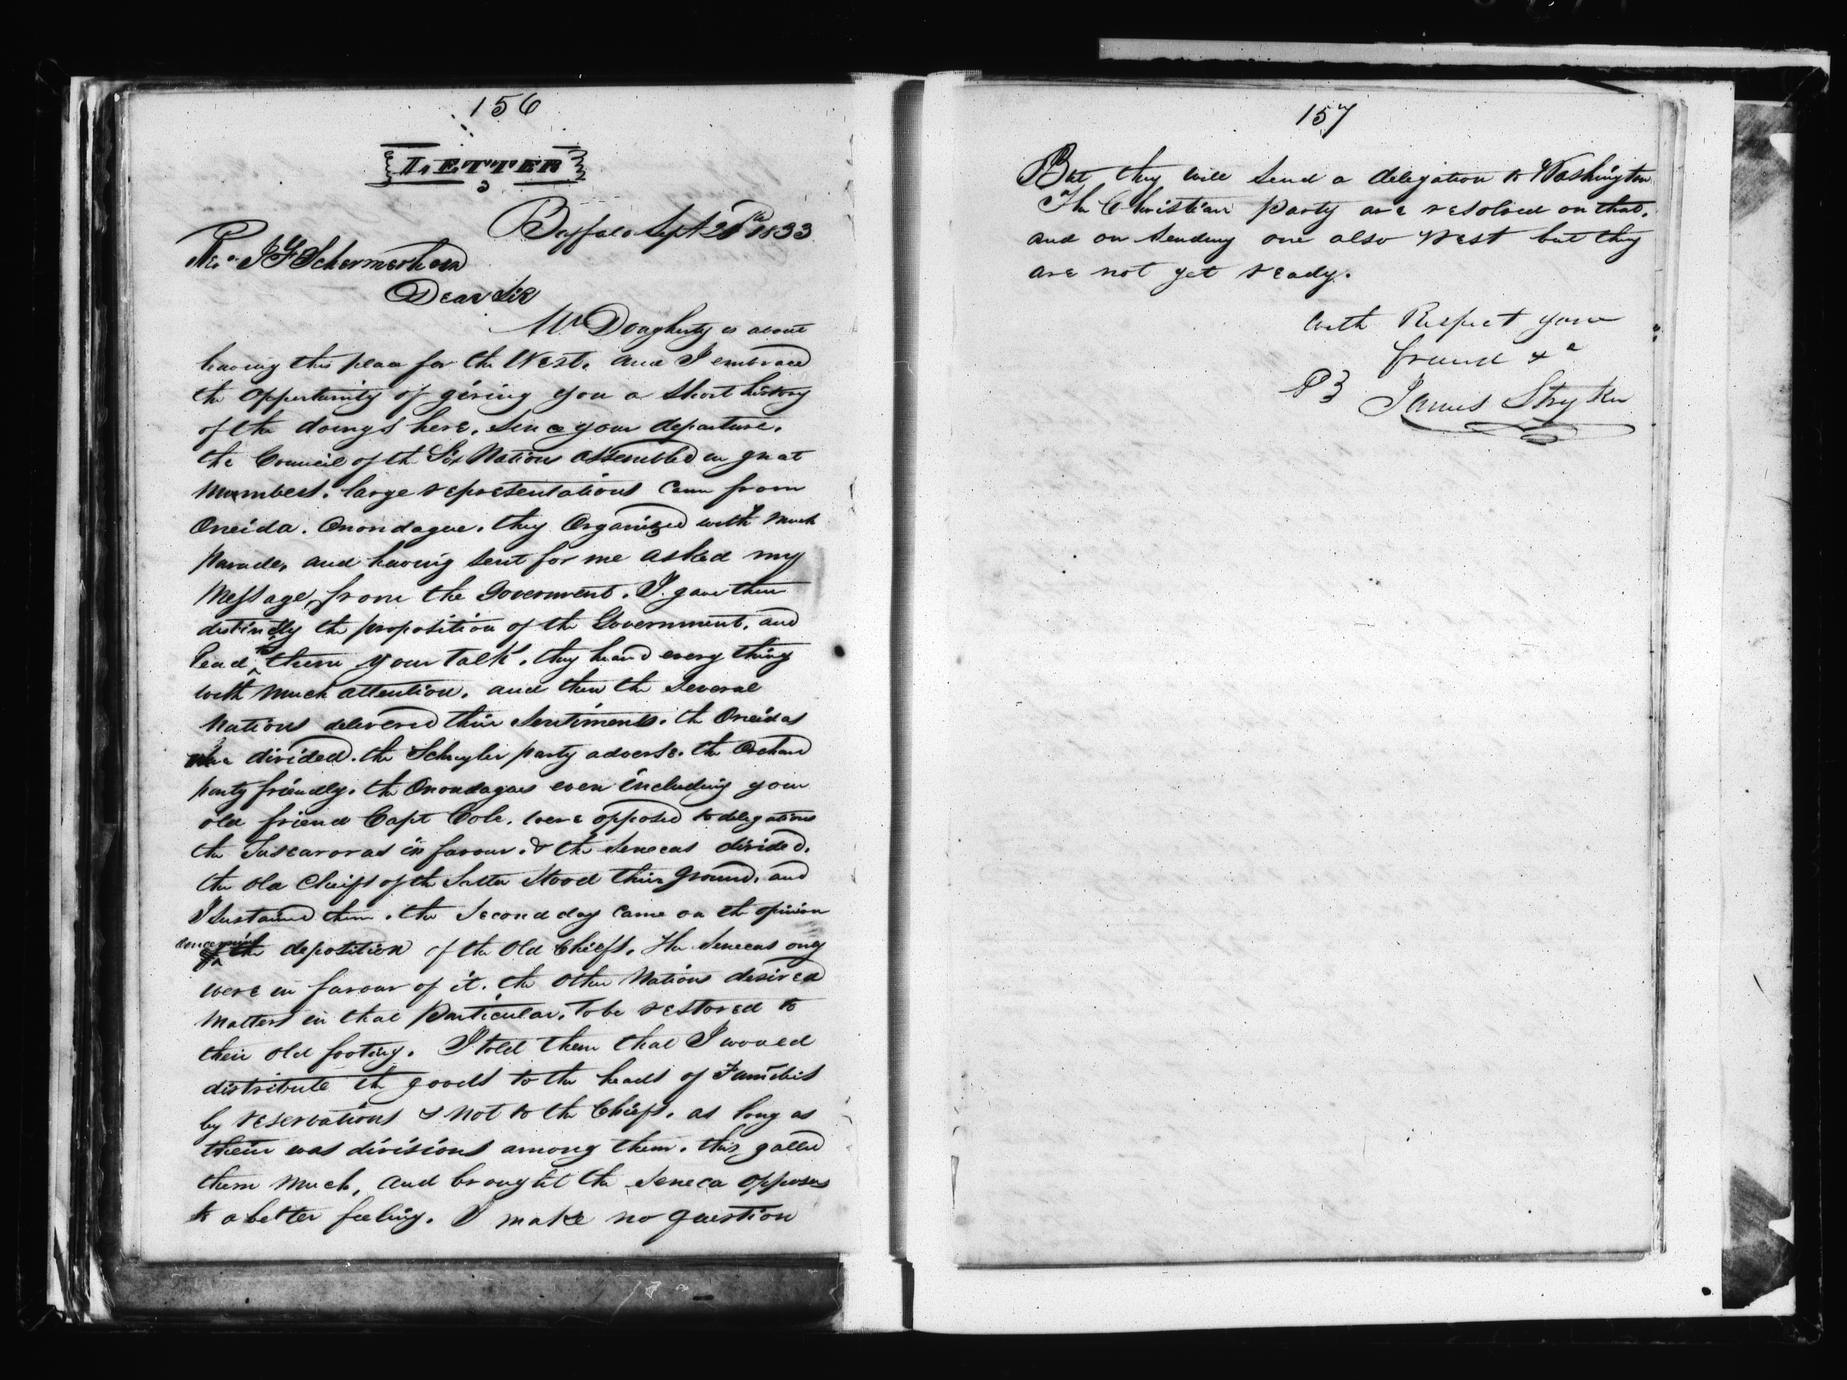 156
LETTER
Buffalo Sept 20th 1833
Rev. J F Schermerhorn
Dear Sir
Mr Dougherty is about
leaving this place for the West. and I embrace
the opportunity of giving you a short history
of the doings here, since your departure.
the Council of the Six Nations assembled in great
numbers. large representations came from
Oneida. Onondague. they organized with much
parade, and having sent for me asked my
message from the Government. I gave them
distinctly the proposition of the Government, and
read to them your talk. they heard every thing
with much attention. and then the several
Nations delivered their sentiments. the Oneidas
are divided. the Schuyler party adverse. the Orchard
party friendly. the Onondagas even including your
old friend Capt Cole. were opposed to delegations
the Tuscaroras in favour. & the Senecas divided.
the old Chiefs of the latter stood their ground, and
I sustained them. the second day came on the opinion
concerning the deposition of the Old Chiefs. the Senecas only
were in favour of it. the other Nations desired
matters in that particular, to be restored to
their old footing. I told them that I would
distribute the goods to the heads of Families
by reservations & not to the Chiefs. as long as
their was divisions among them. this galled
them much, and brought the Seneca opposers
to a better feeling. I make no question
157
But they will send a delegation to Washington
The Christian party are resolved on that.
and on sending one also West but they
are not yet ready.
with Respect your
friend &c
James Stryker